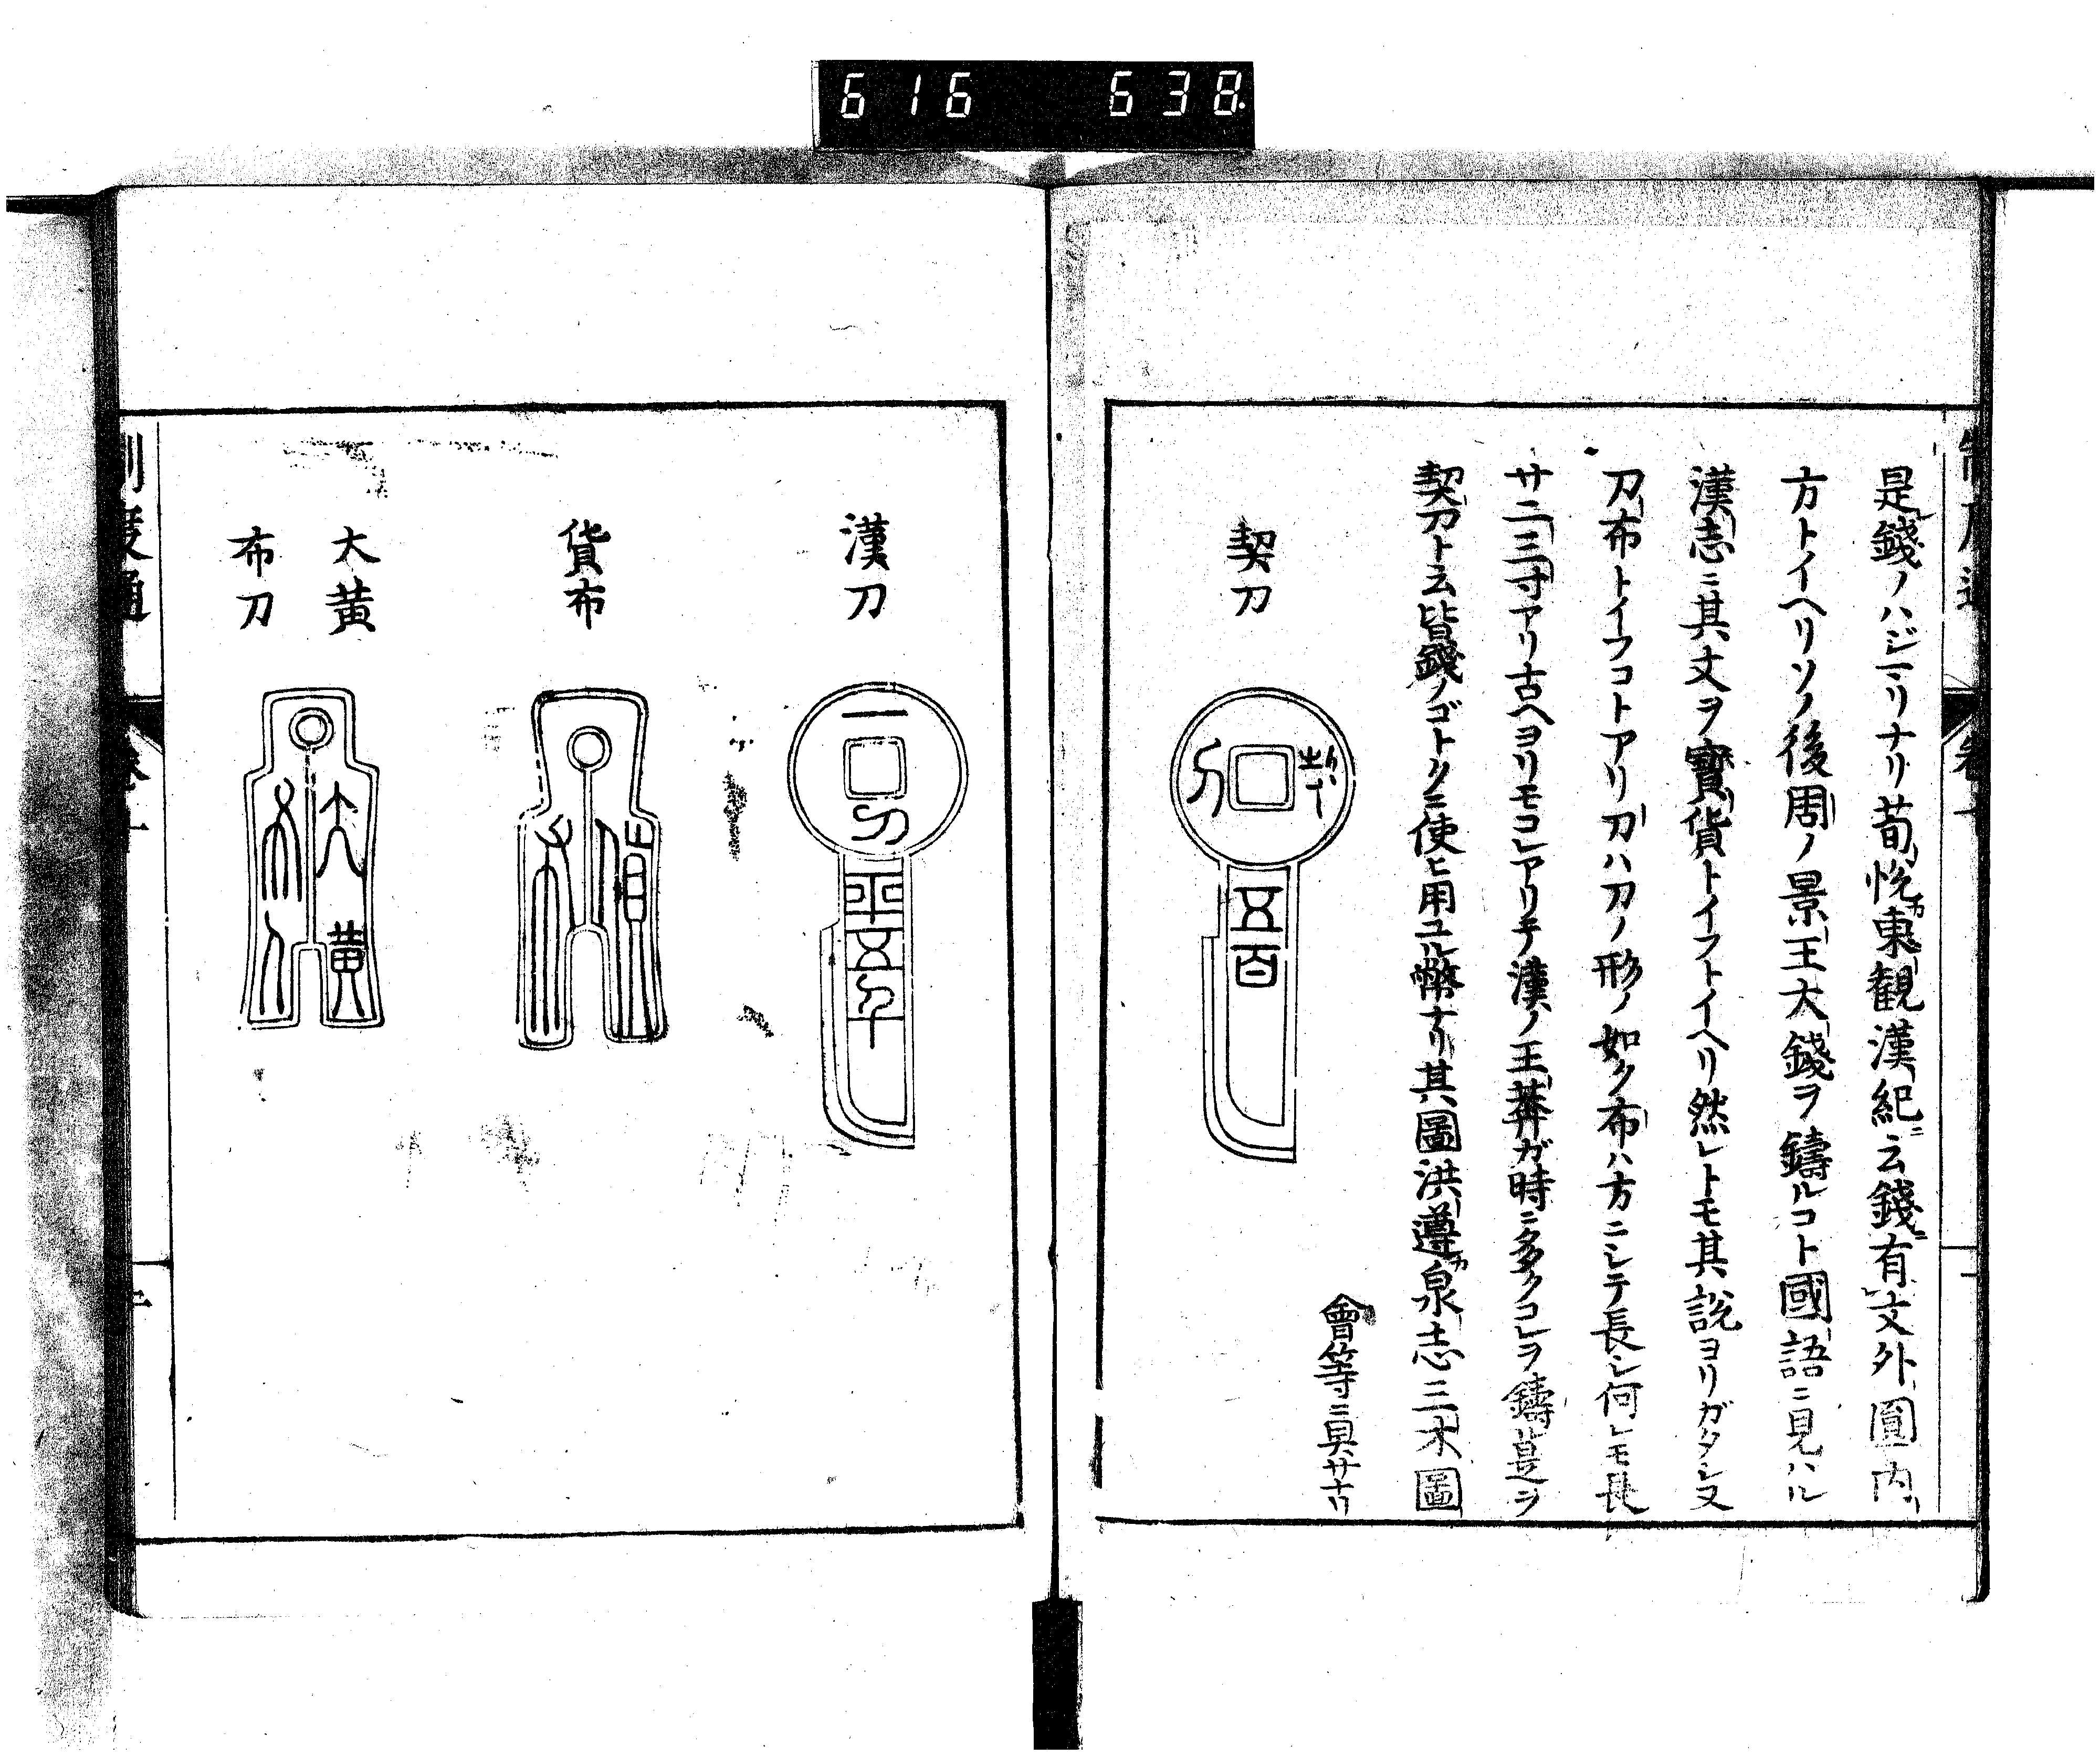 616 638
是錢ノハジマリナリ荀悅カ東觀漢紀ニ云錢有文外圓内
方トイヘリソノ後周ノ景王大錢ヲ鑄ルコト國語ニ見ハル
漢志ニ其丈ヲ寶貨トイフトイヘリ然レトモ其説ヨリガタシ又
刀布トイフコトアリ刀ハ刀ノ形ノ如ク布ハ方ニシテ長シ何レモ長
サ二三寸アリ古ヘヨリモコレアリテ漢ノ王莽ガ時ニ多クコレヲ鑄是ヲ
契刀ト云皆錢ノゴトクニ使ヒ用ユル幣ナリ其圖洪遵カ泉志三才圖
會等ニ具サナリ
契刀
五百
漢刀
一刀
平五千
貨布
大黃
布刀
大黃
制度通